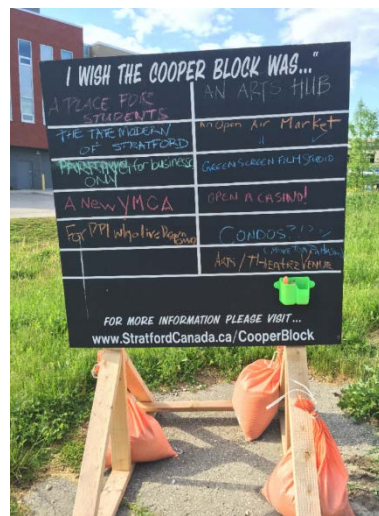 I WISH THE COOPER BLOCK WAS..."
A PLACE FOR
STUDENTS
THE TATE MODERN
OF STRATFORD
for business
ONLY
A New YMCA
For PPl who live Down
Town
AN ARTS HUB
An Open Air Market
GREEN SCREEN FILM STUDIO
OPEN A CASINO!
CONDOS?!?
ARTS / THEATRE VENUE
FOR MORE INFORMATION PLEASE VISIT...
www.StratfordCanada.ca/CooperBlock